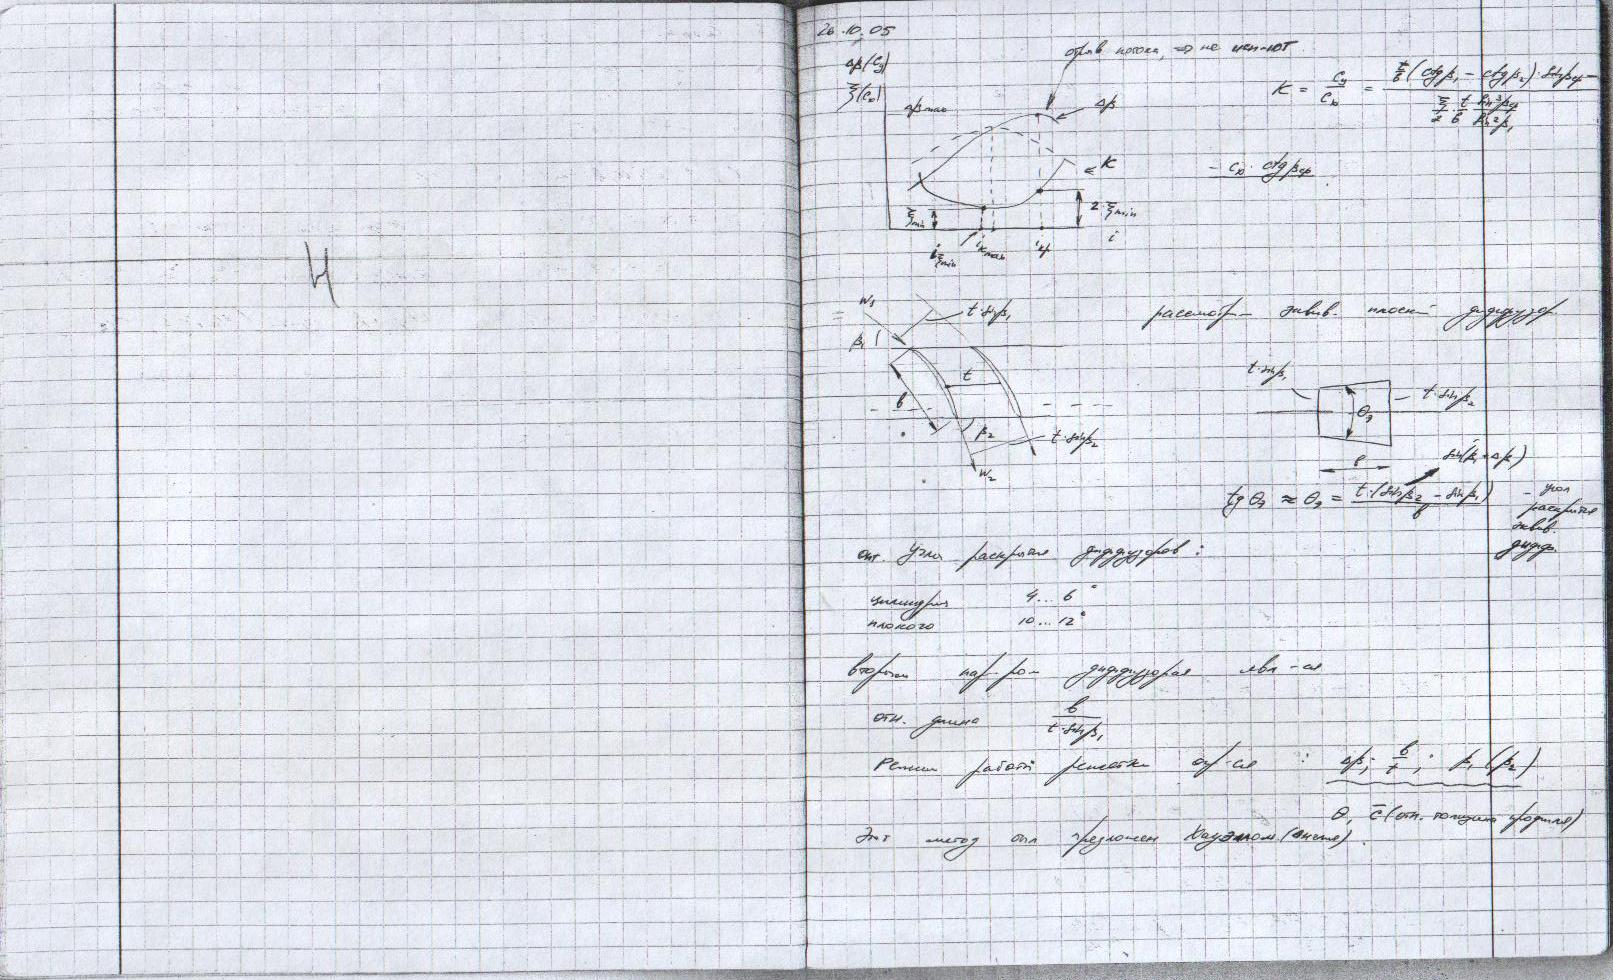 Ч
26.10.05
Δβ(Cy)
ξ(Cю)
отрыв потока, ⇒ не мен-ют
Δβmax
Δβ
K
ξmin
2·ξmin
iξmin
iKmax
iкр
i
K = Cy/Cю = t/в (ctgβ1 - ctgβ2)·sinβср - / ξ/2 · t/в · sin³βср/sin²β1
- Cю · ctgβср
W1
t·sinβ1
β1
t
в
β2
t·sinβ2
W2
рассмотр- эквив. плоский диффузор
t·sinβ1
θэ
t·sinβ2
в
sin(β1+Δβ)
tgθэ ≈ θэ = t·(sinβ2 - sinβ1) / в
- угол
раскрытия
эквив.
дифф.
опт. углы раскрытия диффузоров :
цилиндрич 4...6°
плоского 10...12°
вторым пар-ром диффузора явл-ся
отн. длина в / t·sinβ1
Режим работы решетки опр-ся : Δβ; в/т; β1(β2)
θ, c̄ (отн. толщина профиля)
Этот метод был предложен Хауэллом (англия).